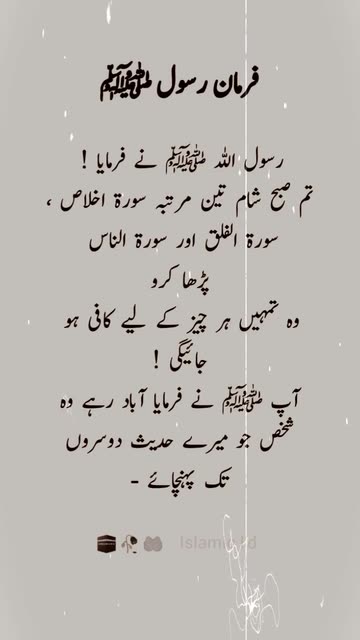 فرمان رسول ﷺ
رسول اللہ ﷺ نے فرمایا !
تم صبح شام تین مرتبہ سورۃ اخلاص ،
سورۃ الفلق اور سورۃ الناس
پڑھا کرو
وہ تمہیں ہر چیز کے لیے کافی ہو
جائیگی !
آپ ﷺ نے فرمایا آباد رہے وہ
شخص جو میرے حدیث دوسروں
تک پہنچائے -